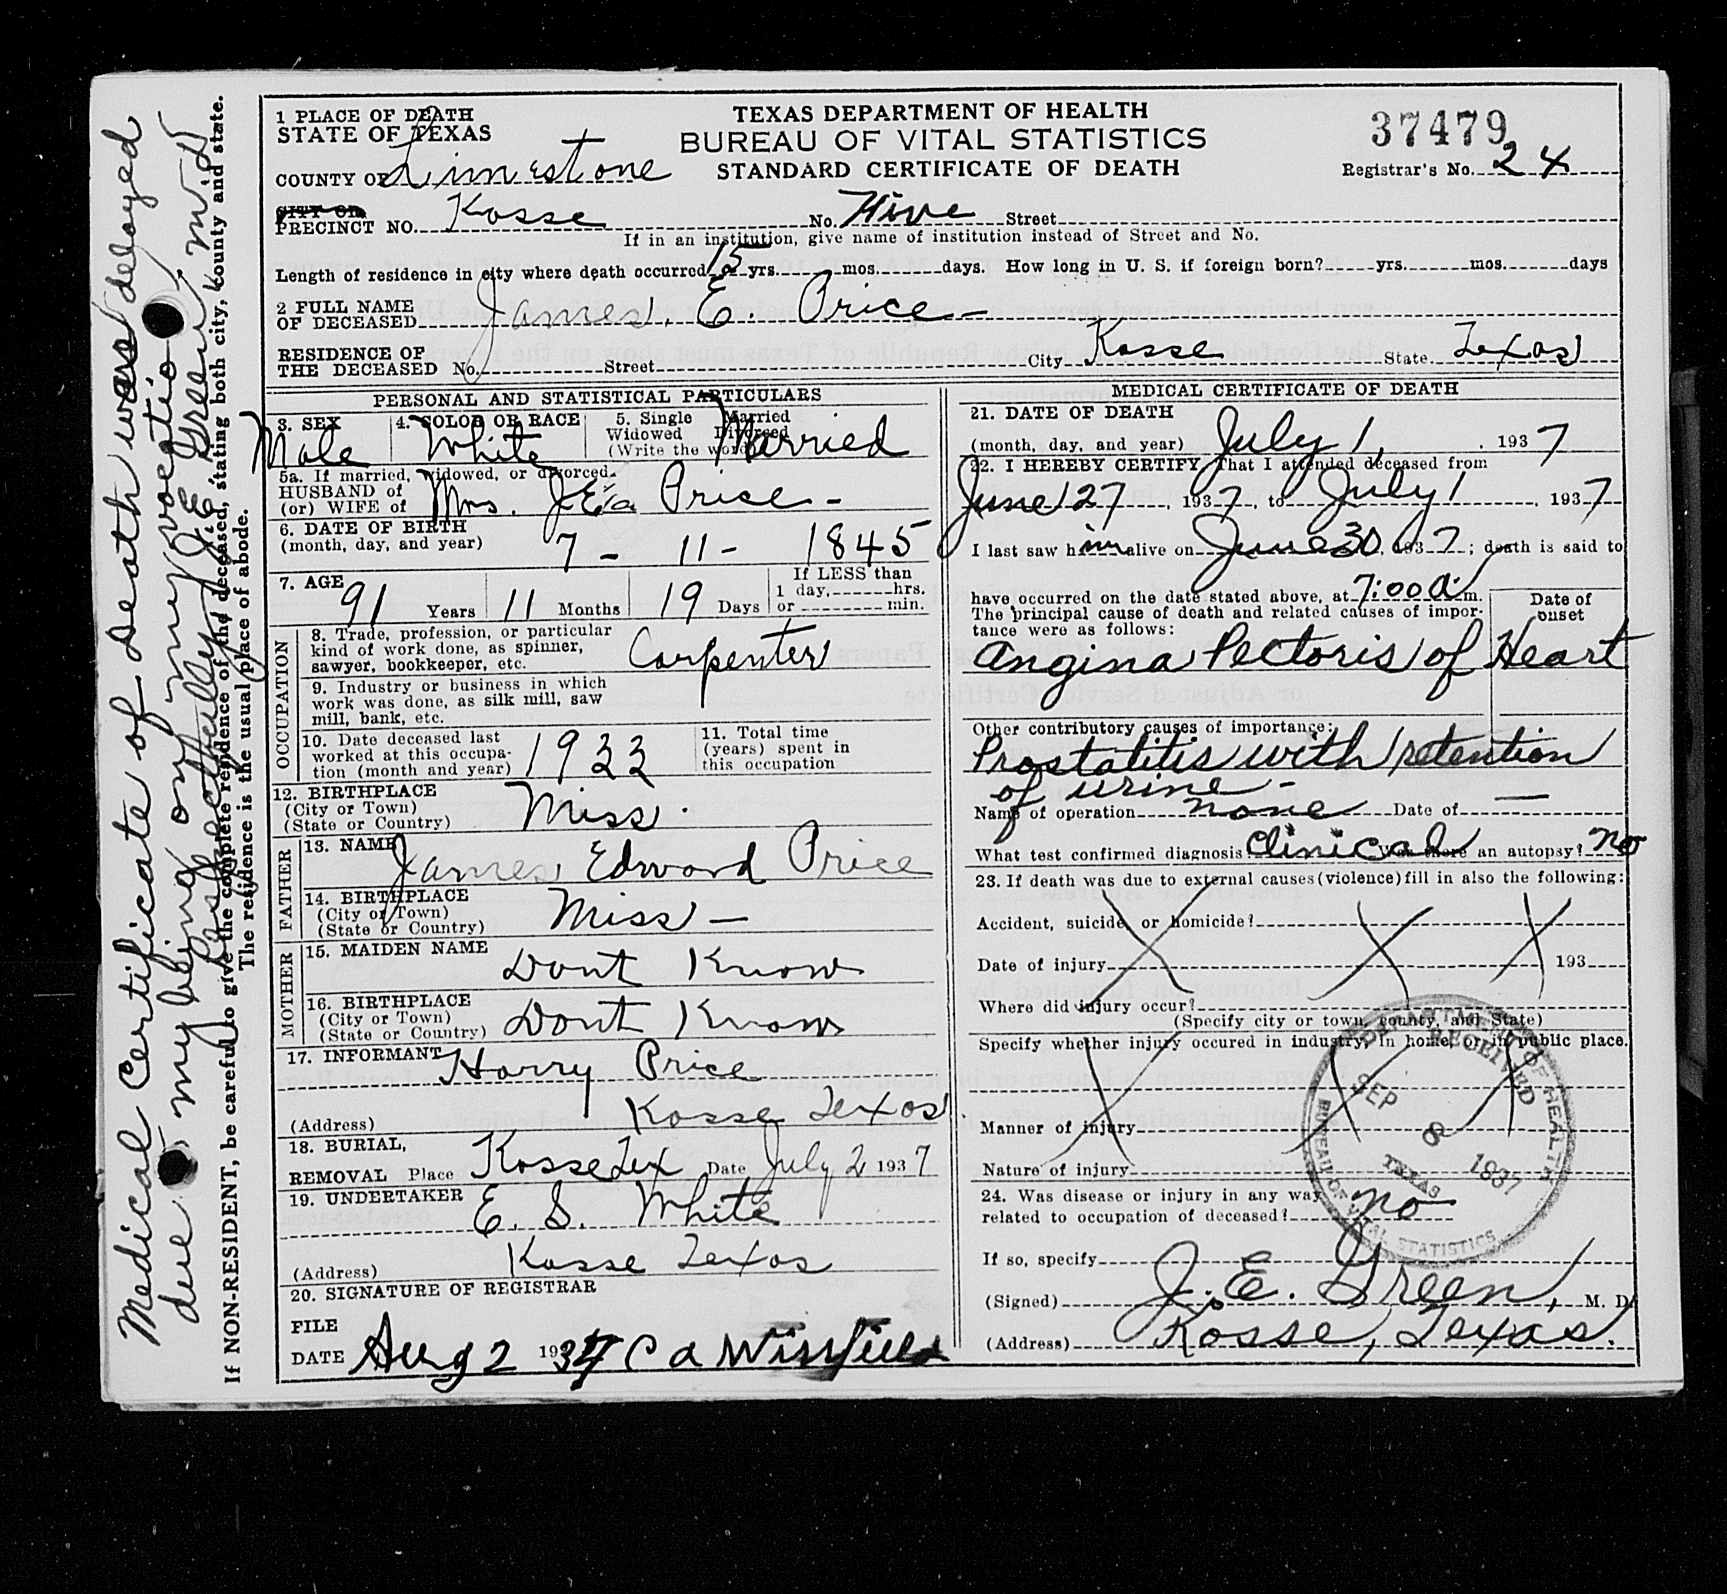 1 PLACE OF DEATH
STATE OF TEXAS
COUNTY OF Limestone
TEXAS DEPARTMENT OF HEALTH
BUREAU OF VITAL STATISTICS
STANDARD CERTIFICATE OF DEATH
37479
Registrar's No. 24
CITY OR
PRECINCT NO. Kosse No. Five Street
If in an institution, give name of institution instead of Street and No.
Length of residence in city where death occurred 15 yrs. mos. days. How long in U. S. if foreign born? yrs. mos. days
2 FULL NAME
OF DECEASED James. E. Price
RESIDENCE OF
THE DECEASED No. Street City Kosse State Texas
PERSONAL AND STATISTICAL PARTICULARS
3. SEX Male
4. COLOR OR RACE White
5. Single Married
Widowed Divorced
(Write the word) Married
5a. If married, widowed, or divorced.
HUSBAND of
(or) WIFE of Mrs. J.E. Price -
6. DATE OF BIRTH
(month, day, and year) 7 - 11 - 1845
7. AGE 91 Years 11 Months 19 Days
If LESS than
1 day, hrs.
or min.
OCCUPATION
8. Trade, profession, or particular
kind of work done, as spinner,
sawyer, bookkeeper, etc. Carpenter
9. Industry or business in which
work was done, as silk mill, saw
mill, bank, etc.
10. Date deceased last
worked at this occupa-
tion (month and year) 1933
11. Total time
(years) spent in
this occupation
12. BIRTHPLACE
(City or Town)
(State or Country) Miss.
FATHER
13. NAME James Edward Price
14. BIRTHPLACE
(City or Town)
(State or Country) Miss -
MOTHER
15. MAIDEN NAME Dont Know
16. BIRTHPLACE
(City or Town)
(State or Country) Dont Know
17. INFORMANT Harry Price
(Address) Kosse Texas
18. BURIAL,
REMOVAL Place Kosse Tex Date July 2 1937
19. UNDERTAKER E. S. White
(Address) Kosse Texas
20. SIGNATURE OF REGISTRAR
FILE
DATE Aug 2 1937 C A Winfield
MEDICAL CERTIFICATE OF DEATH
21. DATE OF DEATH
(month, day, and year) July 1, 1937
22. I HEREBY CERTIFY, That I attended deceased from
June 27, 1937, to July 1, 1937
I last saw him alive on June 30, 1937; death is said to
have occurred on the date stated above, at 7:00 a. m.
The principal cause of death and related causes of impor-
tance were as follows:
Date of
onset
Angina Pectoris of Heart
Other contributory causes of importance:
Prostatitis with retention
of urine -
Name of operation none Date of —
What test confirmed diagnosis? Clinical Was there an autopsy? no
23. If death was due to external causes (violence) fill in also the following:
Accident, suicide, or homicide?
Date of injury 193
Where did injury occur?
(Specify city or town, county, and State)
Specify whether injury occured in industry, in home, or in public place.
Manner of injury
Nature of injury
24. Was disease or injury in any way
related to occupation of deceased? no
If so, specify
(Signed) J. E. Green, M. D.
(Address) Kosse, Texas.
DEPARTMENT OF HEALTH
RECEIVED
SEP 8 1937
TEXAS
BUREAU OF VITAL STATISTICS
Medical Certificate of Death was delayed
due to my being on my vocation
Respectfully J. E. Green, M.D.
If NON-RESIDENT, be careful to give the complete residence of the deceased, stating both city, county and state.
The residence is the usual place of abode.